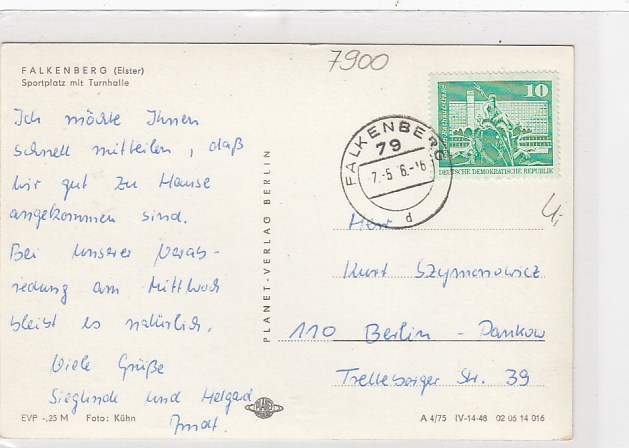 7900
FALKENBERG (Elster)
Sportplatz mit Turnhalle
Ich möchte Ihnen
schnell mitteilen, daß
wir gut zu Hause
angekommen sind.
Bei unserer Verab-
redung am Mittwoch
bleibt es natürlich.
Viele Grüße
Sieglinde und Helgard
EVP -,25 M Foto: Kühn
PLANET-VERLAG BERLIN
PLANET
10
DEUTSCHE DEMOKRATISCHE REPUBLIK
FALKENBERG
79
d
Herr
Kurt Szymonowicz
110 Berlin - Pankow
Trelleborger Str. 39
A 4/75 IV-14-48 02 06 14 016